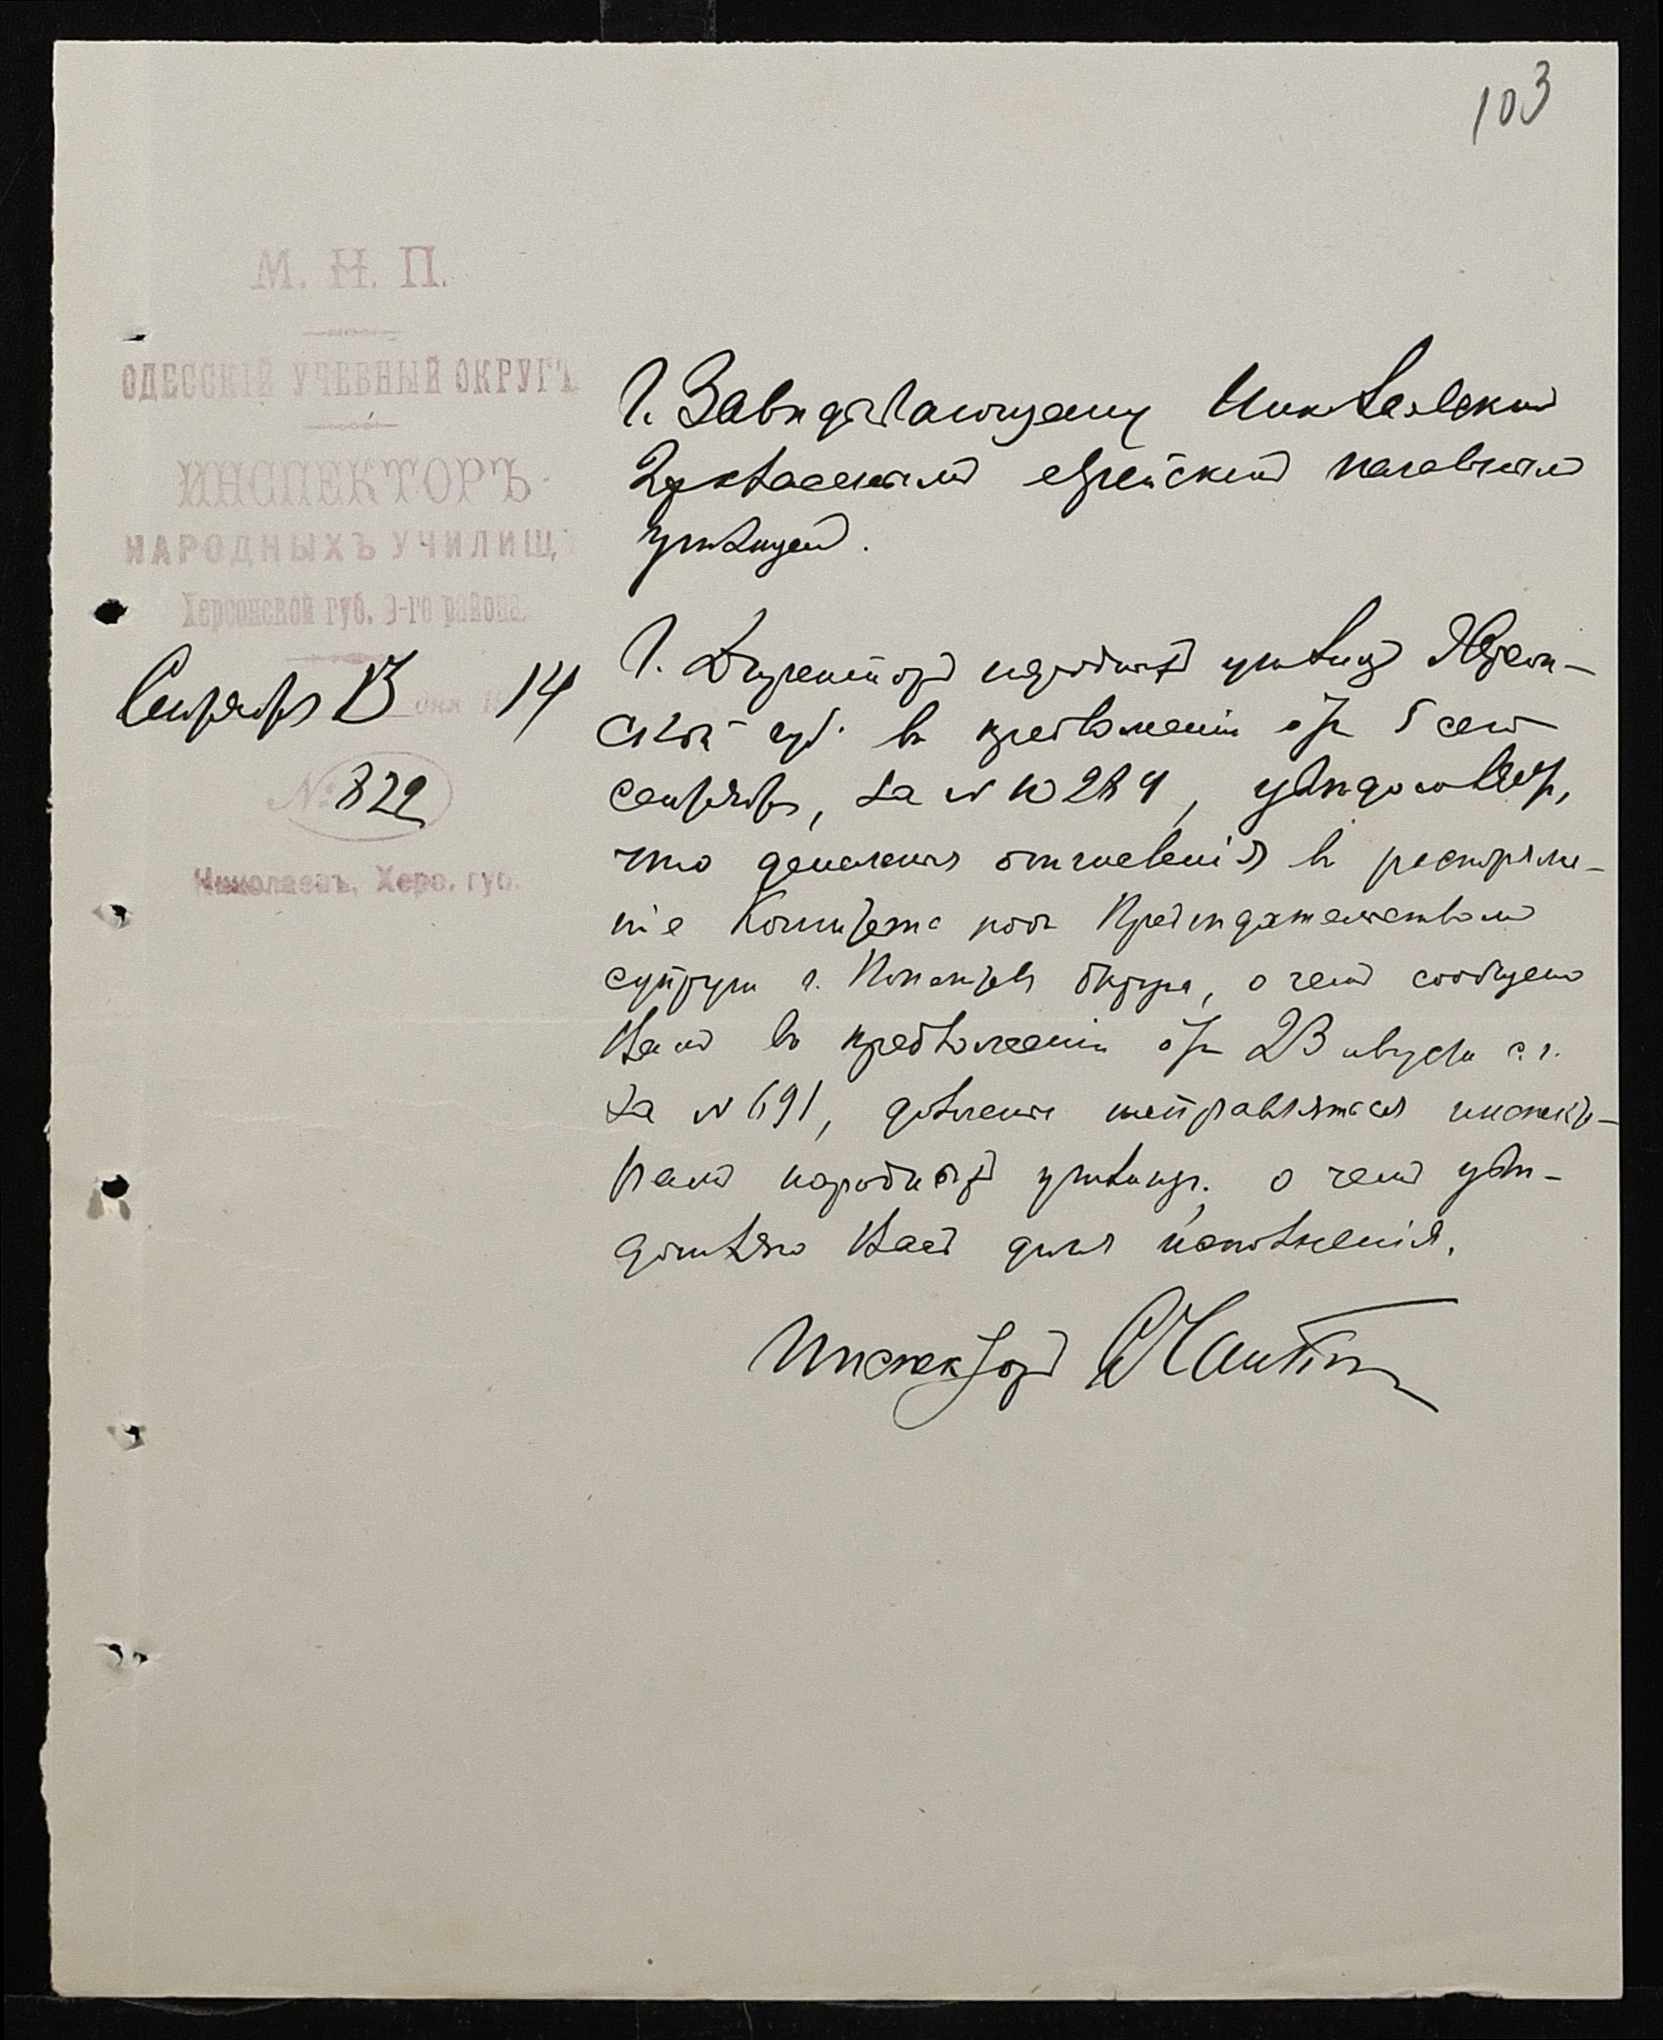 103
М. Н. П.
ОДЕССКІЙ УЧЕБНЫЙ ОКРУГЪ
ИНСПЕКТОРЪ
НАРОДНЫХЪ УЧИЛИЩЪ
Херсонской губ. 3-го района.
Сентября 13 дня 1914
№ 822
Николаевъ, Херс. губ.
Г. Завѣдывающему Николаевскимъ
2х класснымъ еврейскимъ начальнымъ
училищемъ.
Г. Директоръ народныхъ училищъ Херсон-
ской губ. въ предложеніи отъ 5 сего
сентября, за № 10284, увѣдомляетъ,
что денежныя отчисленія въ распоряже-
ніе Комитета подъ Предсѣдательствомъ
супруги г. Попечителя Округа, о чемъ сообщено
Вамъ въ предложеніи отъ 23 августа с. г.
за № 691, должны направляться инспекто-
рамъ народныхъ училищъ, о чемъ увѣ-
домляю Васъ для исполненія.
Инспекторъ